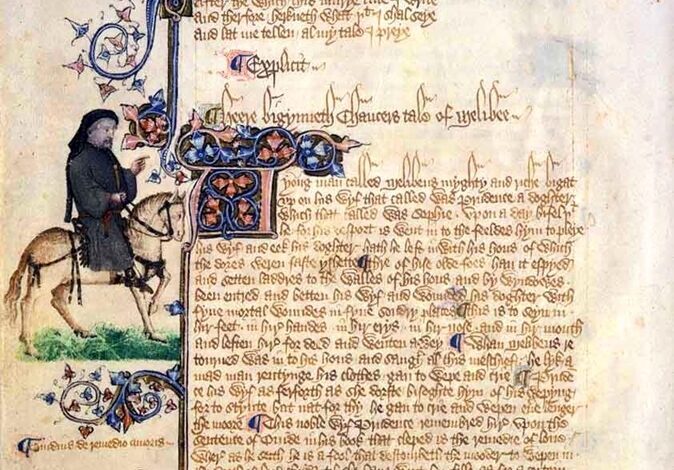 and therfore herkneth what I shal seye
and lat me tellen al my tale I preye
Explicit
Heere bigynneth Chaucers tale of Melibee
yong man called Melibeus myghty and riche bigat
up on his wyf that called was Prudence a doghter
which that called was Sophie . Upon a day bifel
he for his desport is went in to the feeldes hym to pleye
his wyf and eek his doghter hath he left inwith his hous of which
the dores weren faste yshette Thre of hise olde foes han it espyed
and setten laddres to the walles of his hous and by wyndowes
been entred and betten his wyf and wounded his doghter with
fyue mortal woundes in fyue sondry places This is to seyn in
hir feet . in hir handes in hir erys . in hir nose . and in hir mouth
and leften hir for deed and wenten awey Whan Melibeus re
tourned was in to his hous and saugh al this meschief . he lyk a
mad man rentynge his clothes gan to wepe and crie Prude
ce his wyf as ferforth as she dorste bisoghte hym of his wepyng
for to stynte but nat for thy he gan to crie and wepen euere lenger
the moore This noble wyf Prudence remembred hir upon the
sentence of Ouide in his book that cleped is the remedie of loue
Wher as he seith he is a fool that destourbeth the mooder to wepen in
Ouidius de remedio amoris